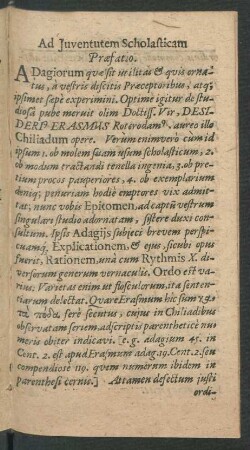 Ad Juventutem Scholasticam
Præfatio.
ADagiorum quæ sit utilitas & qvis orna-
tus, à vestris discitis Præceptoribus, atq;
ipsimet sæpe experimini. Optime igitur de stu-
diosâ pube meruit olim Doctiss. Vir, DESI-
DERIUS ERASMUS Roterodam9. aureo illo
Chiliadum opere. Verum enimverò cum id
ipsum 1. ob molem suam usum scholasticum, 2.
ob modum tractandi tenella ingenia, 3. ob pre-
tium procos pauperiores, 4. ob exemplarium
deniq; penuriam hodiè emptores vix admit-
tat, nunc vobis Epitomen, ad captũ vestrum
singulari studio adornatam, sistere duxi con-
sultum. Ipsis Adagijs subjeci brevem perspi-
cuamq́, Explicationem, & ejus, sicubi opus
fuerit, Rationem, unà cum Rythmis X. di-
versorum generum vernaculis. Ordo est va-
rius: Varietas enim ut flosculorum, ita senten-
tiarum delectat. Qvare Erasmum hîc sum κ
τα ποδα. ferè secutus, cujus in Chiliadibus
observatam seriem, adscriptis parentheticè nu-
meris obiter indicavi. [e. g. adagium 45. in
Cent. 2. est apud Erasmum adag. 19. Cent. 2. seu
compendiosè 119. quem numerum ibidem in
parenthesi cernis.] Attamen defectum justi
ordi-